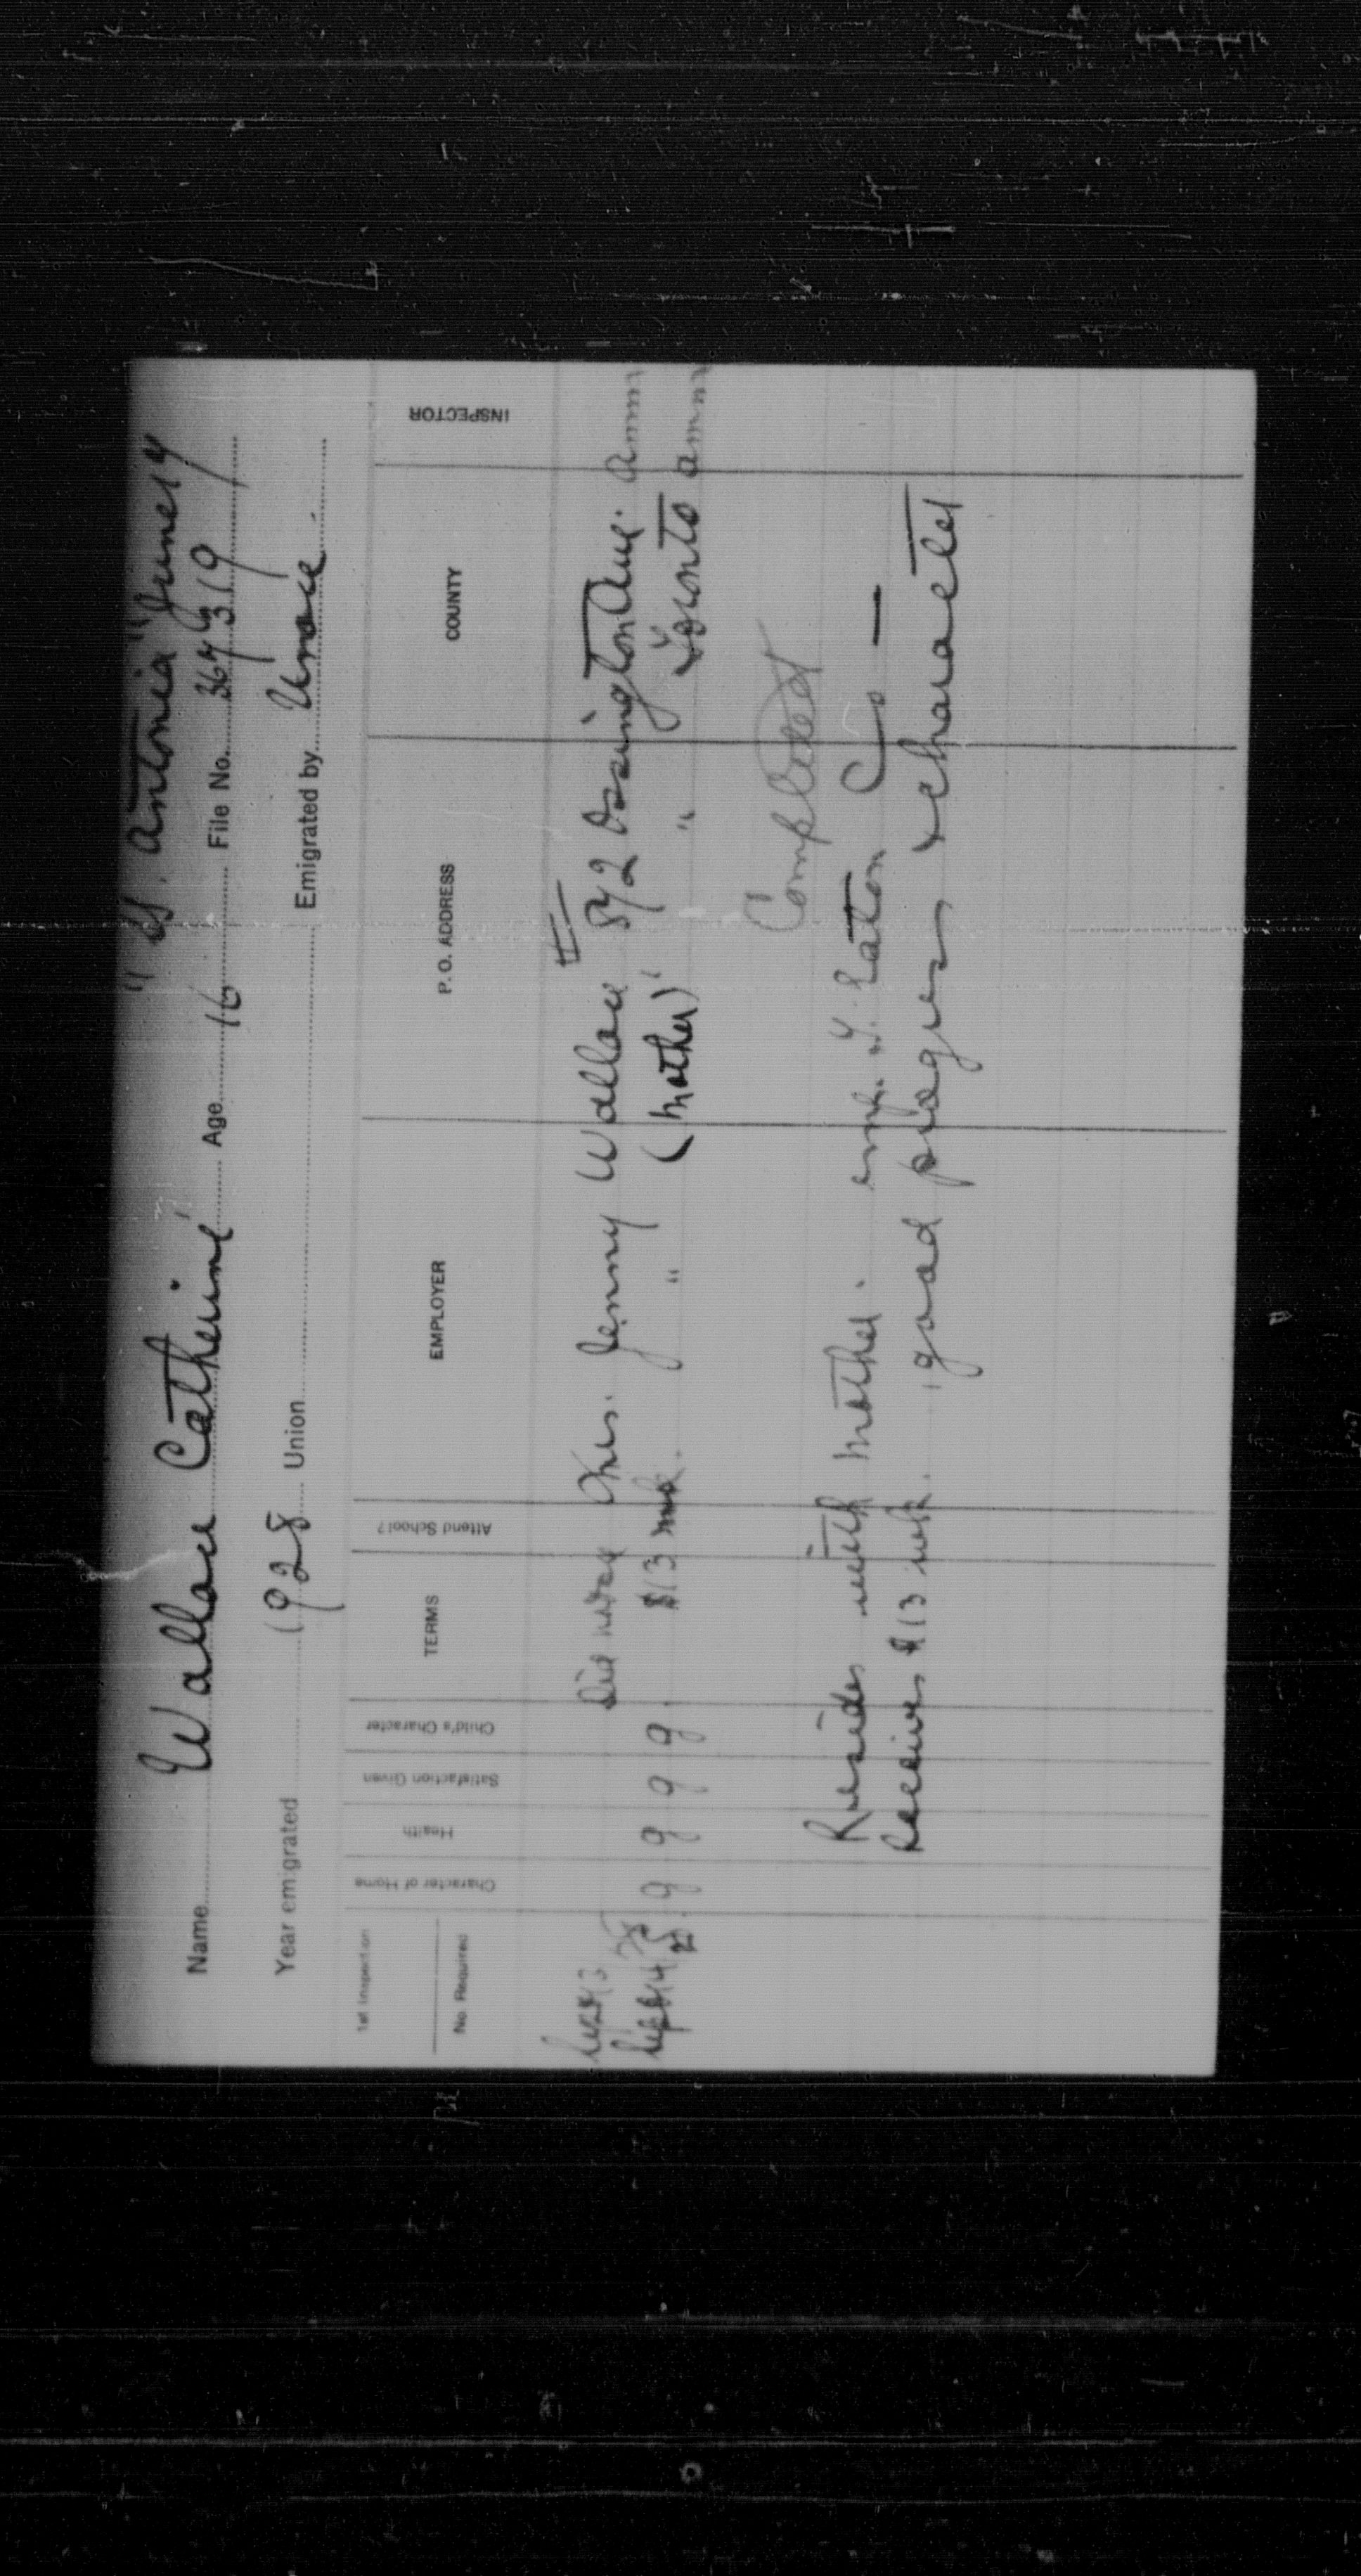 " SS. Antonia" June 14
Name Wallace Catherine Age 16 File No. 367319
Year emigrated 1928 Union Emigrated by Unacc
1st Inspection
No. Required
Character of Home
Health
Satisfaction Given
Child's Character
TERMS
Attend School?
EMPLOYER
P. O. ADDRESS
COUNTY
INSPECTOR
Sept 13 28 Mrs. Jenny Wallace 872 Ossington Ave. amm
Sept 4 g g g g $13 " (Mother) " Toronto amm
Completed
Resides with mother. emp. T. Eaton Co —
Receives $13 wk. good progress & character